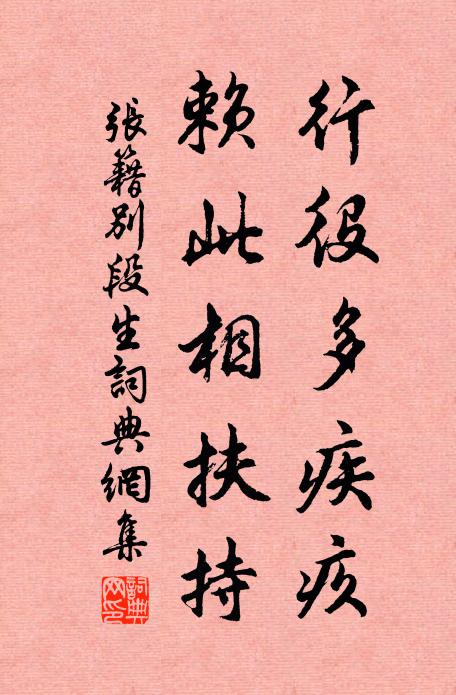 行役多疾疢
賴此相扶持
張籍別段生詞典網集
詞典
网印